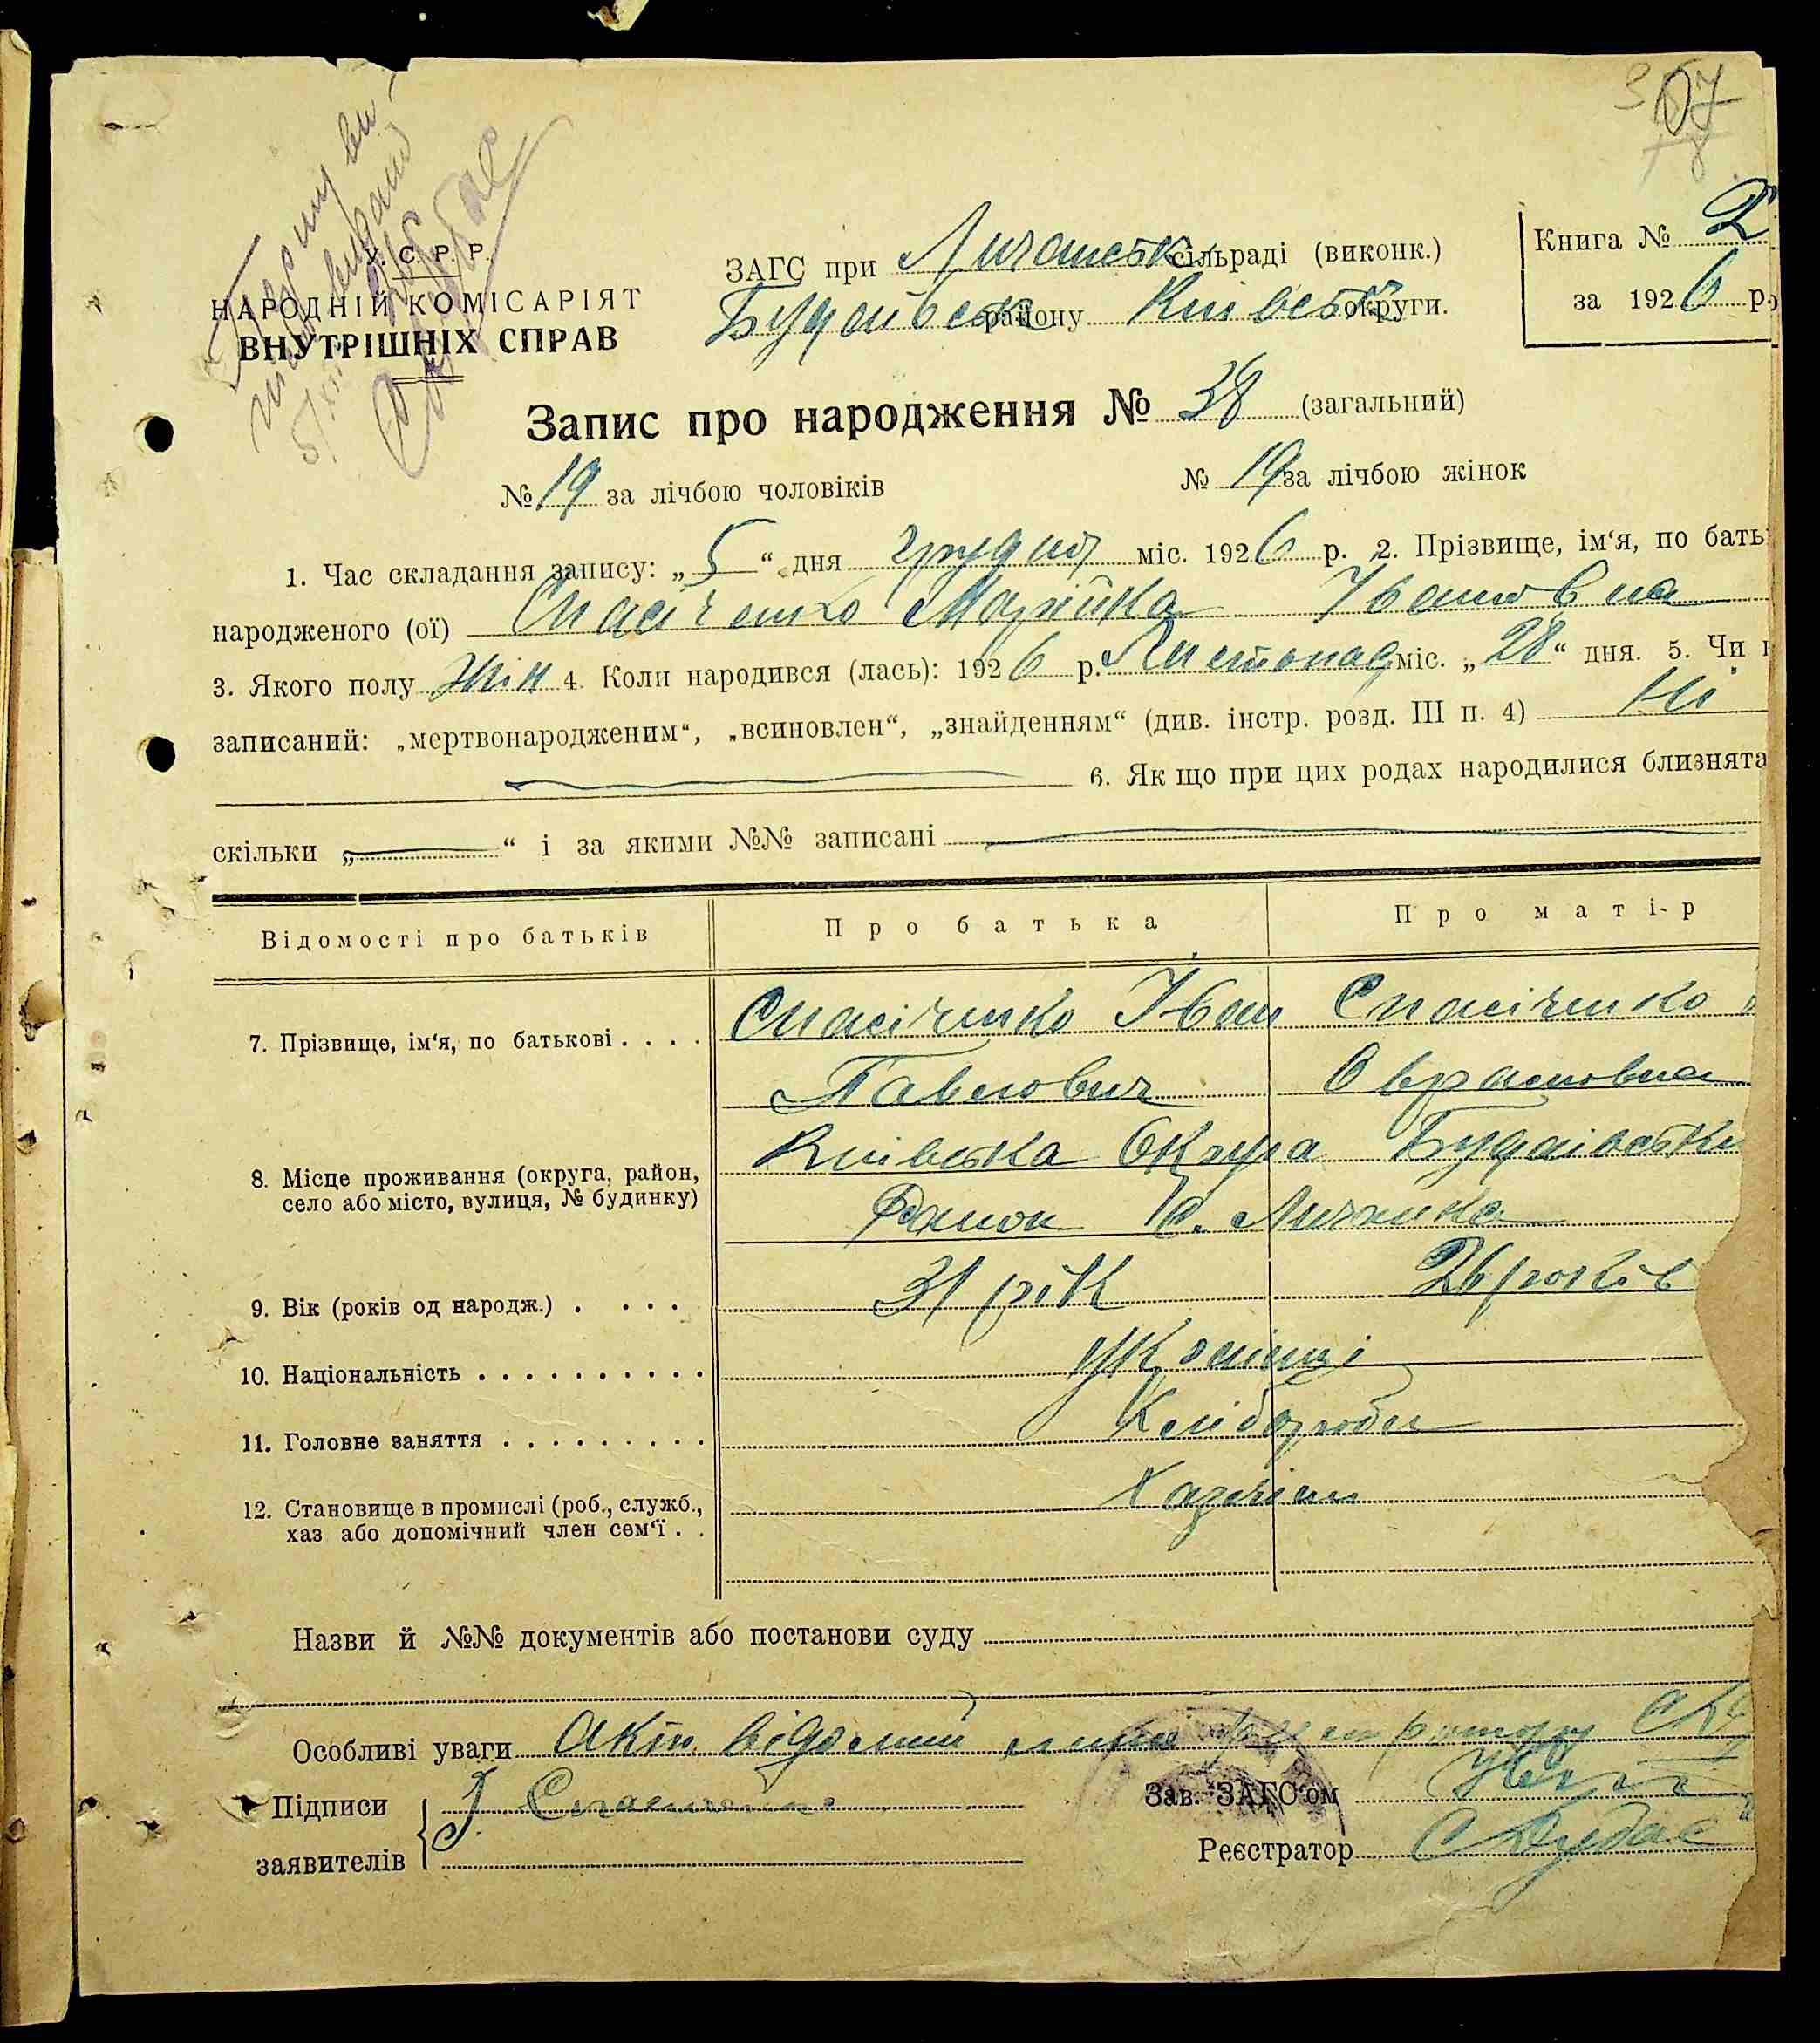 У. С. Р. Р.
НАРОДНІЙ КОМІСАРІЯТ
ВНУТРІШНІХ СПРАВ
ЗАГС при Личанськ сільраді (виконк.)
Будаївськ району Київськ округи.
Книга № 2
за 1926 р.
Запис про народження № 38 (загальний)
№ 19 за лічбою чоловіків № 19 за лічбою жінок
1. Час складання запису: „5“ дня грудня міс. 1926 р. 2. Прізвище, ім‘я, по бать
народженого (ої) Спасіченко Марійка Івановна
3. Якого полу жін 4. Коли народився (лась): 1926 р. Листопад міс. „28“ дня. 5. Чи
записаний: „мертвонародженим“, „всиновлен“, „знайденням“ (див. інстр. розд. III п. 4) Ні
6. Як що при цих родах народилися близнята
скільки „ “ і за якими №№ записані
Відомості про батьків Про батька Про матір
7. Прізвище, ім‘я, по батькові . . . . Спасіченко Іван Спасіченко
Павлович
8. Місце проживання (округа, район, Київська Округа Будаївськи
село або місто, вулиця, № будинку) Район с. Личанка
9. Вік (років од народж.) . . . . 31 рік 26 років
10. Національність . . . . . . . . . . Українці
11. Головне заняття . . . . . . . . . Хлібороби
12. Становище в промислі (роб., служб., Хазяїни
хаз або допомічний член сем‘ї . .
Назви й №№ документів або постанови суду
Особливі уваги Акт
Підписи І Спасіченко Зав. ЗАГС‘ом
заявителів Реєстратор